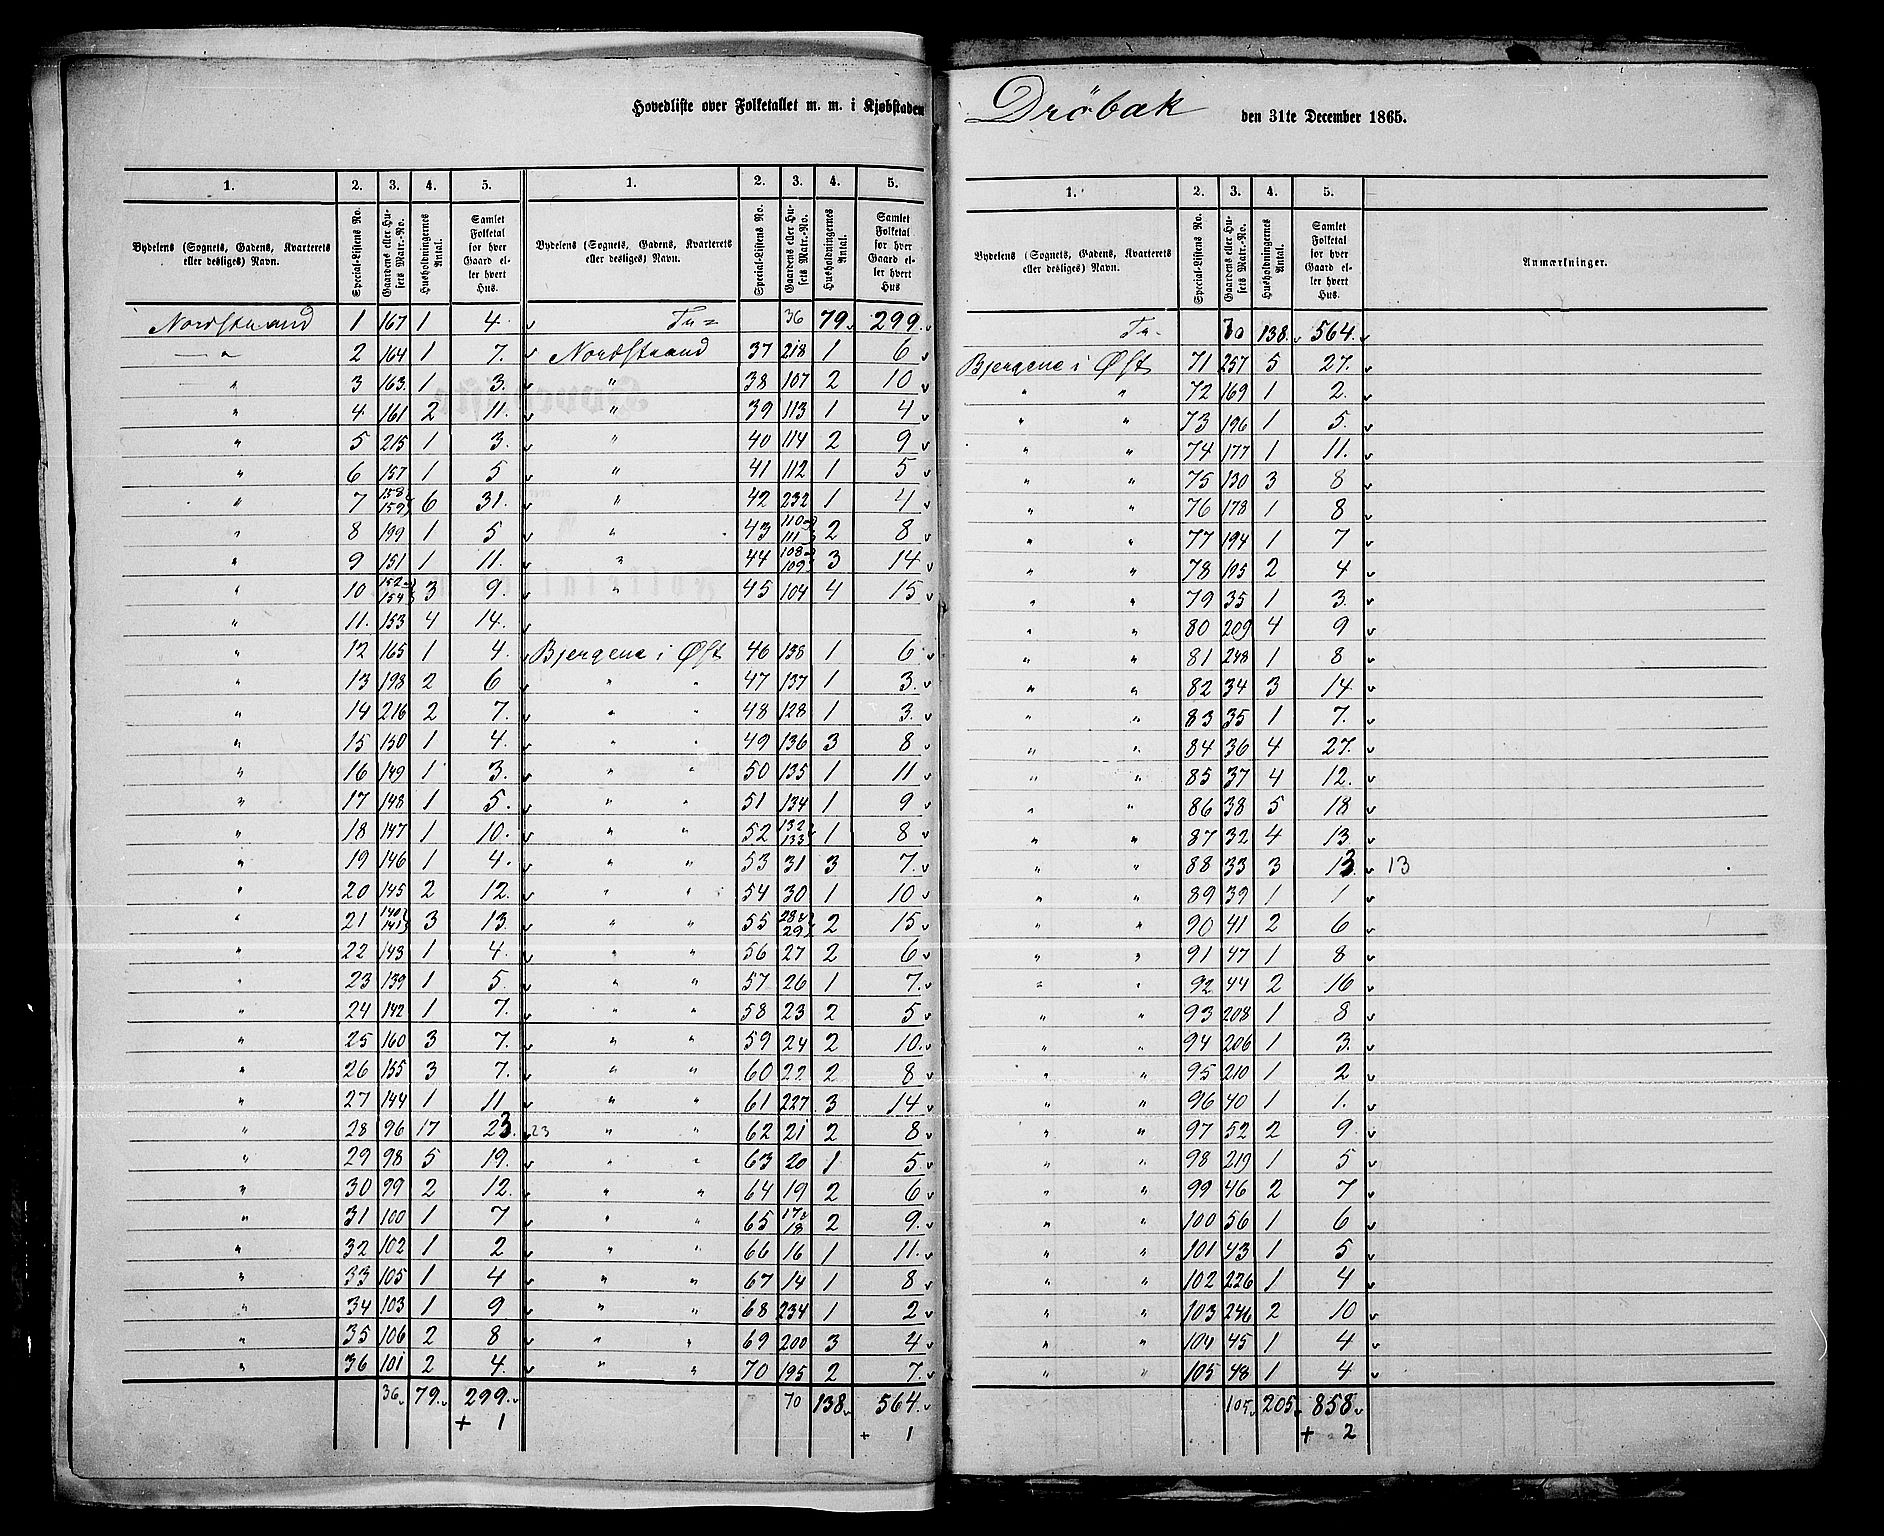 Hovedliste over Folketallet m. m. i Kjøbstaden Dröbak den 31te December 1865.
1. 2. 3. 4. 5. 1. 2. 3. 4. 5.
Bydelens (Sognets, Gadens, Kvarterets eller desliges) Navn. Special-Listens No. Gaardens eller Husets Matr.-No. Husholdningernes Antal. Samlet Folketal for hver Gaard eller hvert Hus. Bydelens (Sognets, Gadens, Kvarterets eller desliges) Navn. Special-Listens No. Gaardens eller Husets Matr.-No. Husholdningernes Antal. Samlet Folketal for hver Gaard eller hvert Hus
Nordstrand 1 167 1 4. v Tr= 36 79 v 299. v
—„— 2 164 1 7. v Nordstrand 37 218 1 6 v
" 3 163 1 3. v " 38 107 2 10 v
" 4 161 2 11. v " 39 113 1 4 v
" 5 215 1 3. v " 40 114 2 9 v
" 6 157 1 5 v " 41 112 1 5 v
" 7 158 159 6 31. v " 42 232 1 4 v
" 8 199 1 5 v " 43 110 111 2 8 v
" 9 151 1 11. v " 44 108 109 3 14 v
" 10 152 154 3 9. v " 45 104 4 15 v
" 11. 153 4 14. v
" 12 165 1 4. v Bjergene i Øst 46 138 1 6 v
" 13 198 2 6 v " " 47 137 1 3. v
" 14 216 2 7. v " " 48 128 1 3. v
" 15 150 1 4. v " " 49 136 3 8 v
" 16 149 1 3. v " " 50 135 1 11 v
" 17 148 1 5. v " " 51 134 1 9 v
" 18 147 1 10. v " " 52 132 133 1 8 v
" 19 146 1 4. v " " 53 31 3 7. v
" 20 145 2 12. v " " 54 30 1 10 v
" 21 140 141 3 13. v " " 55 28 29 2 15 v
" 22 143 1 4. v " " 56 27 2 6 v
" 23 139 1 5. v " " 57 26 1 7. v
" 24 142 1 7. v " " 58 23 2 5 v
" 25 160 3 7. v " " 59 24 2 10. v
" 26 155 3 7. v " " 60 22. 2 8 v
" 27 144 1 11 v " " 61 227 3 14 v
" 28 96 17 23. v 23 " " 62 21 2 8 v
" 29 98 5 19. v " " 63 20 1 5 v
" 30 99 2 12. v " " 64 19 2 6 v
" 31 100 1 7 v " " 65 17 18 2 9. v
" 32 102 1 2 v " " 66 16 1 11. v
" 33 105 1 4 v " " 67 14 1 8 v
" 34 103 1 9 v " " 68 234 1 2 v
" 35 106 2 8 v " " 69 200 3 4 v
" 36 101 2 4. v " " 70 195 2 7. v
36 v 79. v 299. v 70 138 v 564. v
+ 1 + 1
1. 2. 3. 4. 5.
Bydelens (Sognets, Gadens, Kvarterets eller desliges) Navn. Special-Listens No. Gaardens eller Husets Matr.-No. Husholdningernes Antal. Samlet Folketal for hver Gaard eller hvert Hus. Anmærkninger.
Tr. 70 138. v 564. v
Bjergene i Øst 71 257 5 27. v
" " 72 169 1 2. v
" " 73 196 1 5. v
" " 74 177 1 11. v
" " 75 130 3 8 v
" " 76 178 1 8 v
" " 77 194 1 7 v
" " 78 195 2 4 v
" " 79 35 1 3. v
" " 80 209 4 9 v
" " 81 248 1 8 v
" " 82 34 3 14 v
" " 83 35 1 7. v
" " 84 36 4 27. v
" " 85 37 4 12. v
" " 86 38 5 18 v
" " 87 32 4 13. v
" " 88 33 3 13. v 13
" " 89 39 1 1 v
" " 90 41 2 6 v
" " 91 47 1 8 v
" " 92 44 2 16 v
" " 93 208 1 8 v
" " 94 206 1 3. v
" " 95 210 1 2 v
" " 96 40 1 1. v
" " 97 52 2 9. v
" " 98 219 1 5 v
" " 99 46 2 7 v
" " 100 56 1 6 v
" " 101 43 1 5 v
" " 102 226 1 4 v
" " 103 246 2 10 v
" " 104 45 1 4 v
" " 105 48 1 4 v
105 v 205 v 858 v
+ 2